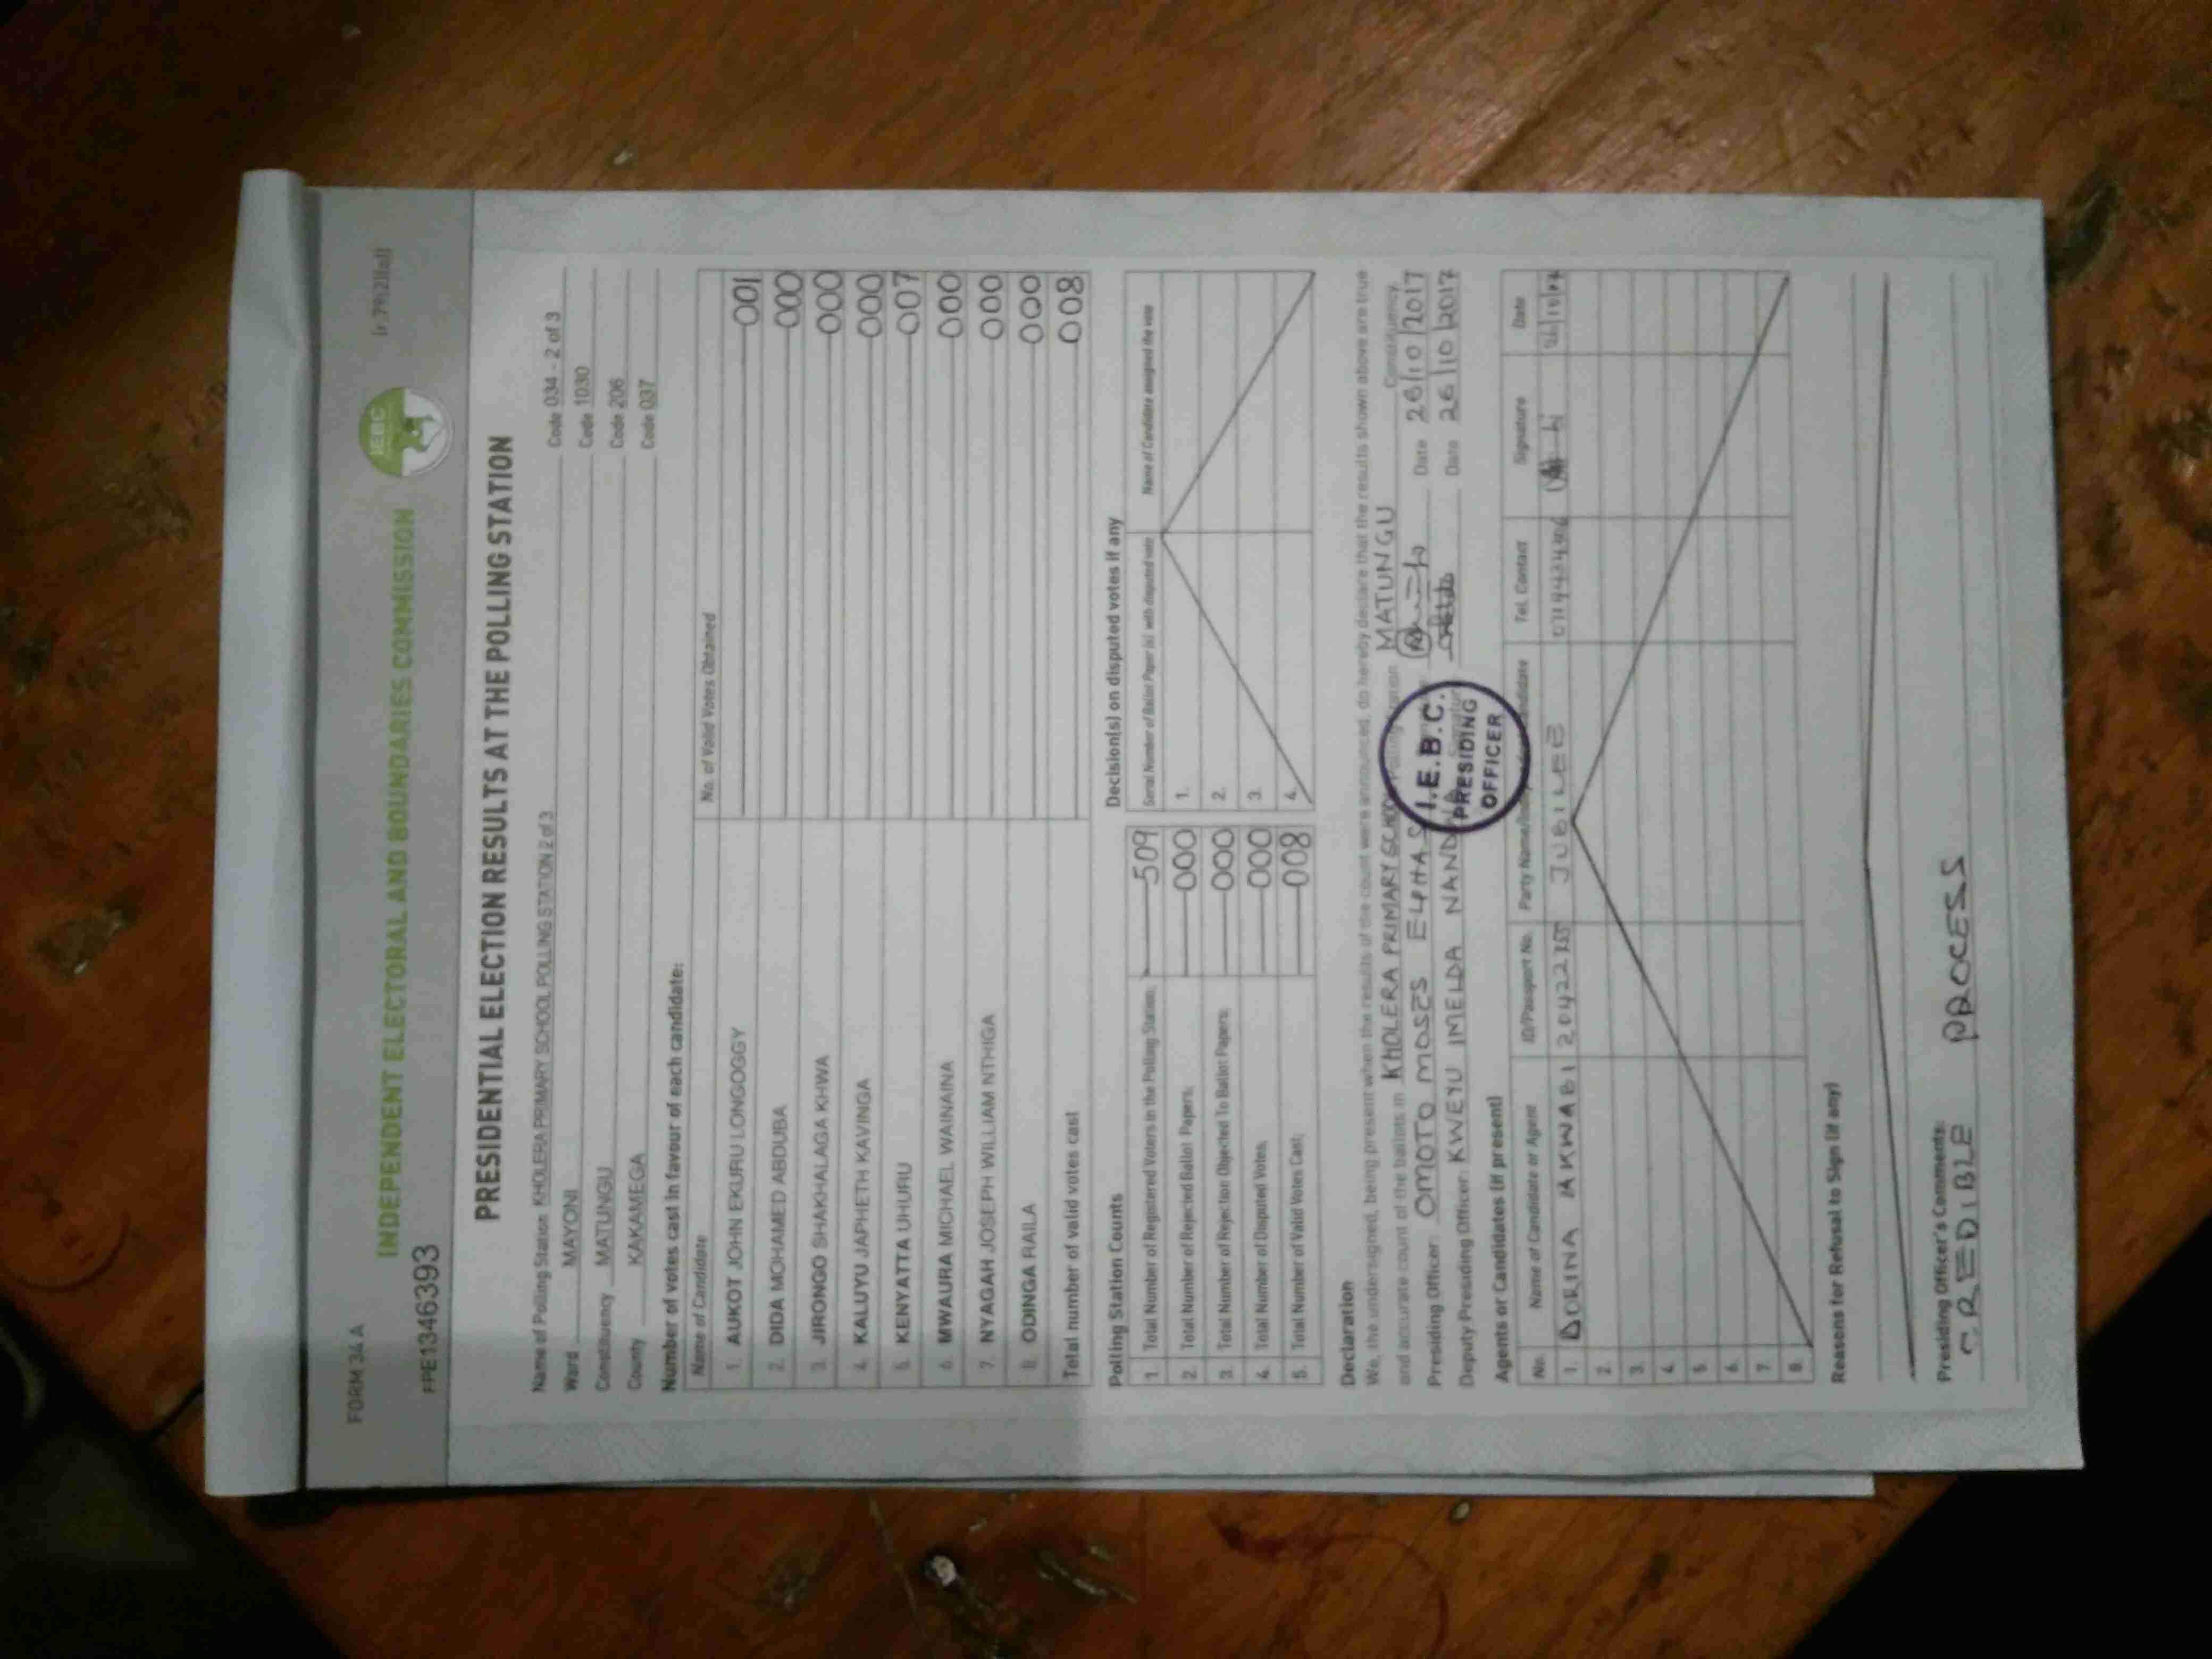 FORM 34 A
(r.79(2)(a))
INDEPENDENT ELECTORAL AND BOUNDARIES COMMISSION
IEBC
FPE13463393
PRESIDENTIAL ELECTION RESULTS AT THE POLLING STATION
Name of Polling Station KHOLERA PRIMARY SCHOOL POLLING STATION 2 of 3 Code 034 - 2 of 3
Ward MAYONI Code 1030
Constituency MATUNGU Code 206
County KAKAMEGA Code 037
Number of votes cast in favour of each candidate:
Name of Candidate No. of Valid Votes Obtained
1. AUKOT JOHN EKURU LONGOGGY 001
2. DIDA MOHAMED ABDUBA 000
3. JIRONGO SHAKHALAGA KHWA 000
4. KALUYU JAPHETH KAVINGA 000
5. KENYATTA UHURU 007
6. MWAURA MICHAEL WAINAINA 000
7. NYAGAH JOSEPH WILLIAM NTHIGA 000
8. ODINGA RAILA 000
Total number of valid votes cast 008
Polling Station Counts
1. Total Number of Registered Voters in the Polling Station: 509
2. Total Number of Rejected Ballot Papers: 000
3. Total Number of Rejection Objected To Ballot Papers: 000
4. Total Number of Disputed Votes: 000
5. Total Number of Valid Votes Cast: 008
Decision(s) on disputed votes if any
Serial Number of Ballot Paper (s) with disputed vote Name of Candidate assigned the vote
1.
2.
3.
4.
Declaration
We, the undersigned, being present when the results of the count were announced, do hereby declare that the results shown above are true
and accurate count of the ballots in KHOLERA PRIMARY SCHOOL Polling Station MATUNGU Constituency.
Presiding Officer: OMOTO MOSES ELPHAS Date 26/10/2017
Deputy Presiding Officer: KWEYU IMELDA Date 26/10/2017
I.E.B.C.
PRESIDING
OFFICER
Agents or Candidates (if present)
No. Name of Candidate or Agent ID/Passport No. Party Name/ Candidate Tel. Contact Signature Date
1. DORINA JUBILEE
2.
3.
4.
5.
6.
7.
8.
Reasons for Refusal to Sign (if any)
Presiding Officer's Comments:
CREDIBLE PROCESS